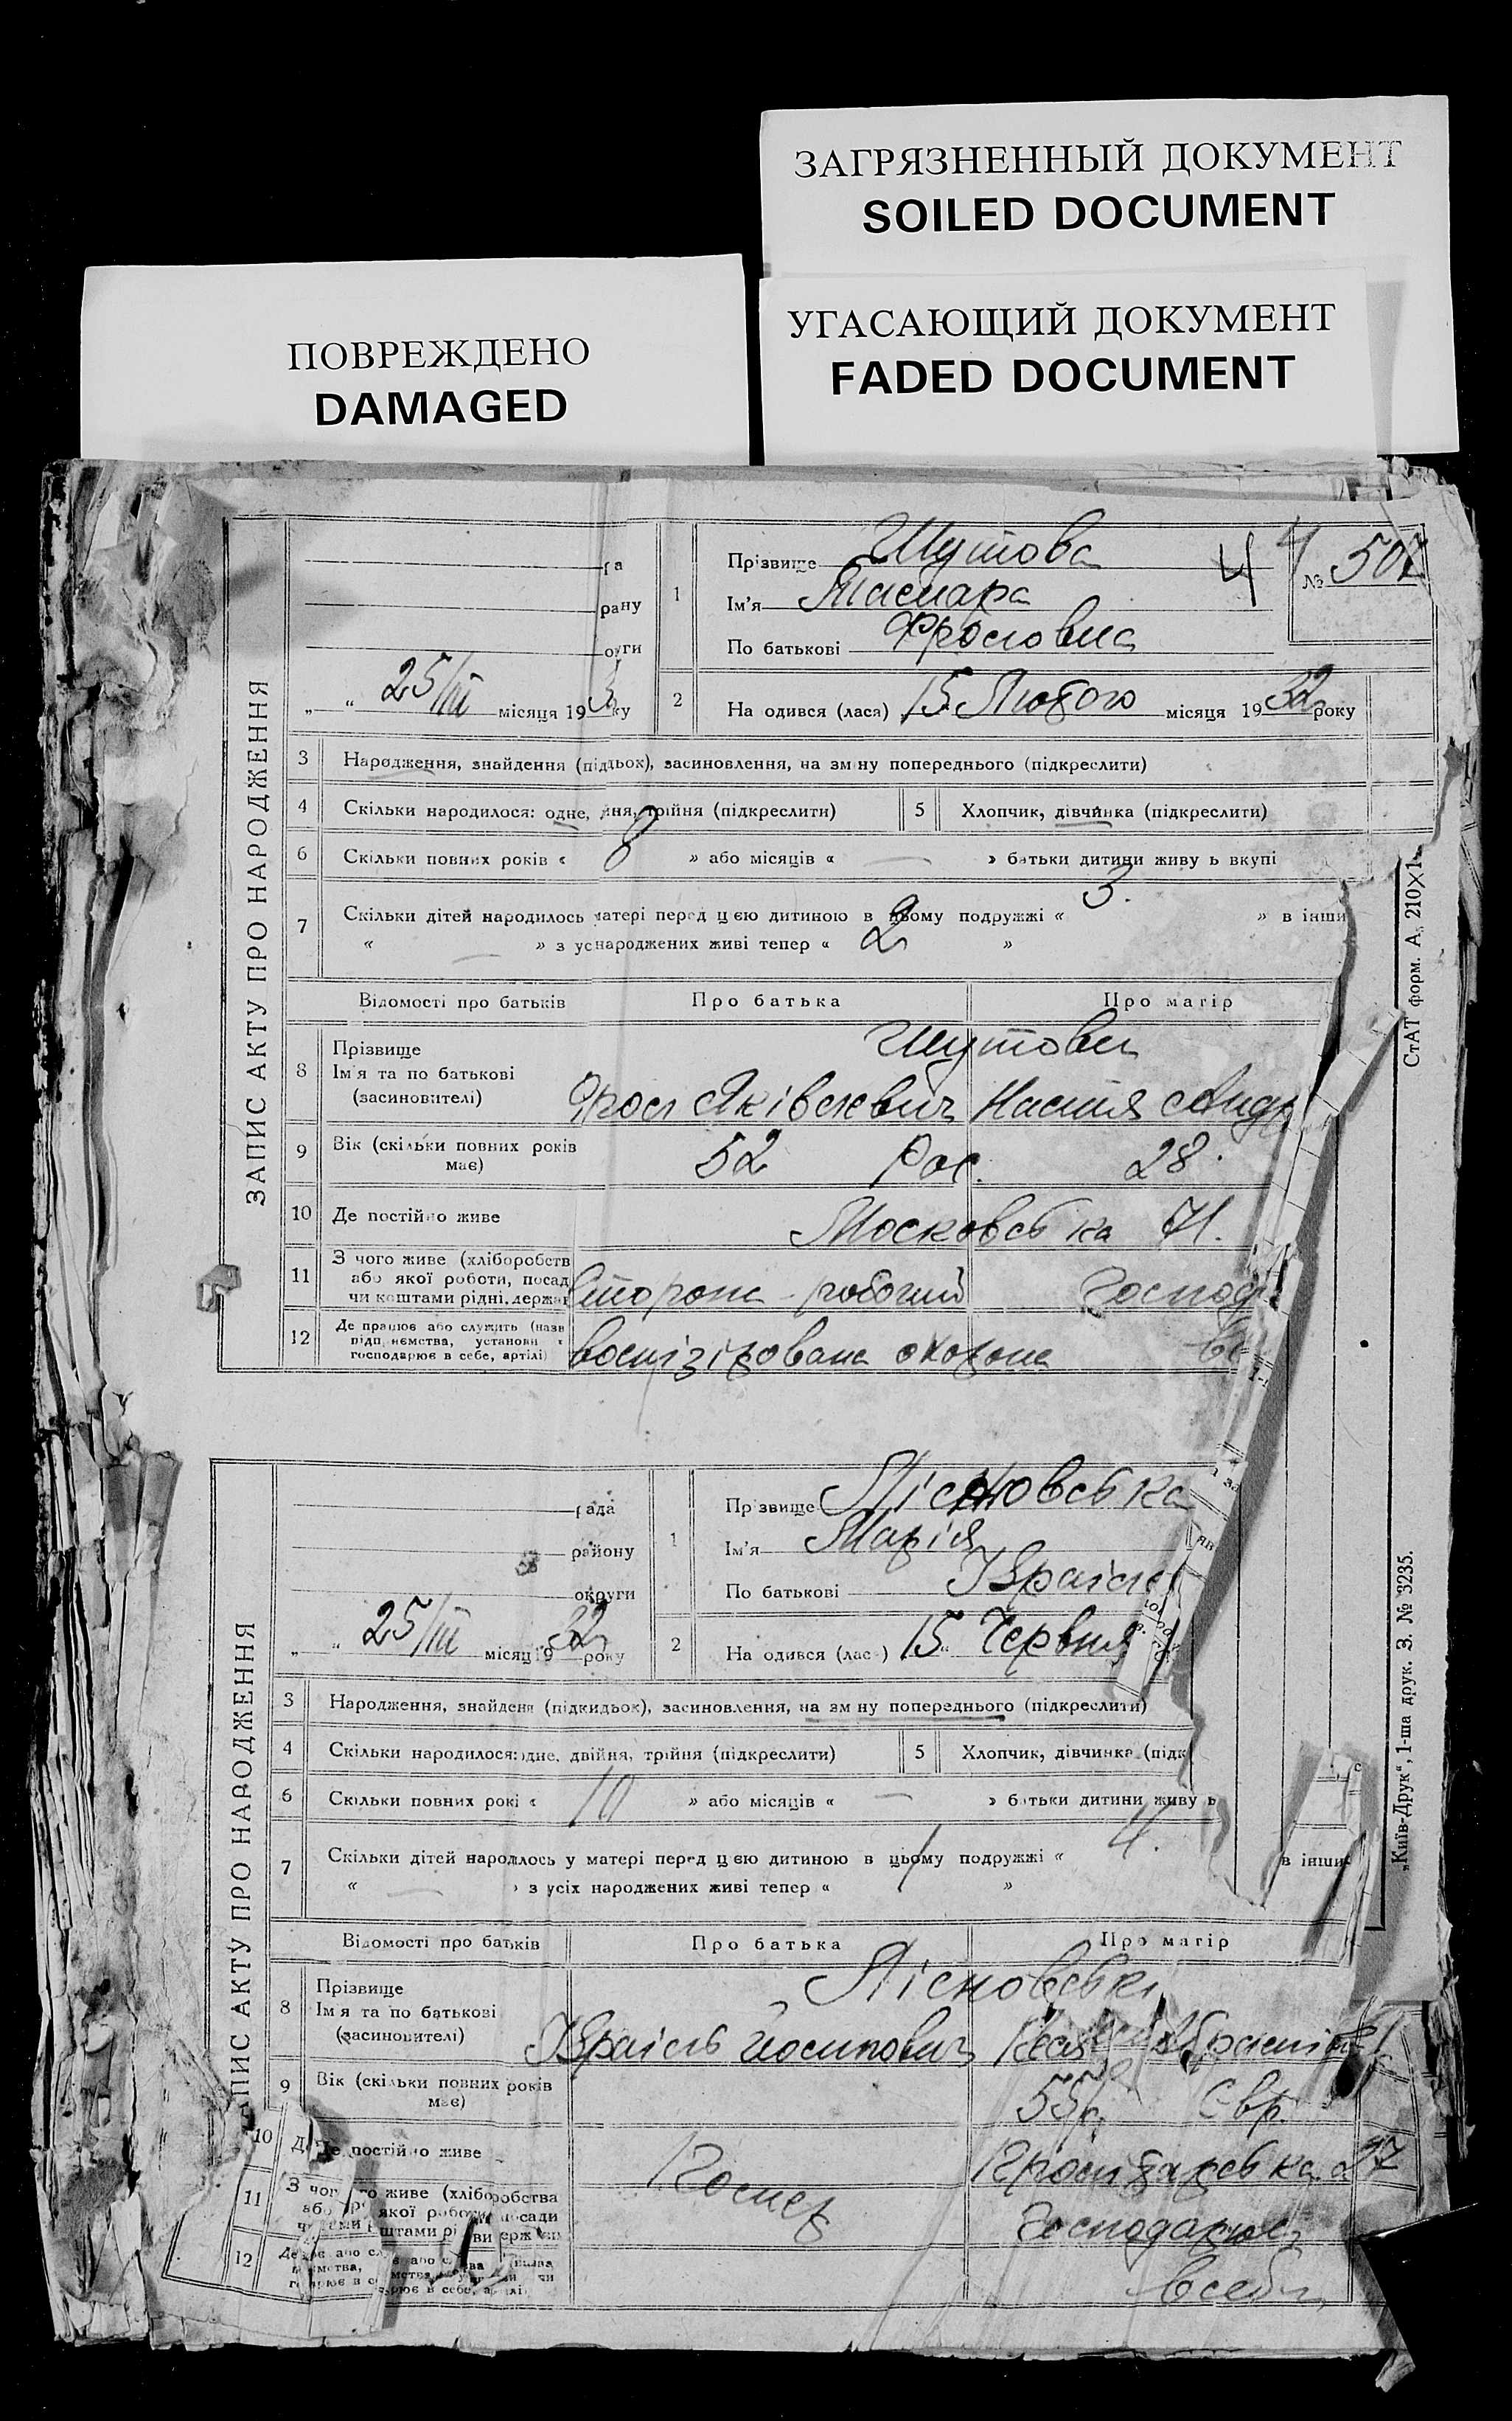 ЗАГРЯЗНЕННЫЙ ДОКУМЕНТ
SOILED DOCUMENT
УГАСАЮЩИЙ ДОКУМЕНТ
FADED DOCUMENT
ПОВРЕЖДЕНО
DAMAGED
ЗАПИС АКТУ ПРО НАРОДЖЕННЯ
рану
„ “ 25/III місяця 193 ку
1 Прізвище Шутова
Ім'я Тамара
По батькові Фроловна
4 4 № 507
2 На одився (лася) 15 Лютого місяця 1932 року
3 Народження, знайдення (підкидьок), засиновлення, на зміну попереднього (підкреслити)
4 Скільки народилося: одне, йня, трійня (підкреслити) 5 Хлопчик, дівчинка (підкреслити)
6 Скільки повних років « 8 » або місяців « — » батьки дитини живу ь вкупі
7 Скільки дітей народилось матері перед цією дитиною в цьому подружжі « 3. » в інши
« — » з ус народжених живі тепер « 2 »
Відомості про батьків Про батька Про матір
8 Прізвище Шутови
Ім'я та по батькові
(засиновителі) Фрол Яківлевич Настя Андр
9 Вік (скільки повних років має) 52 Рос. 28.
10 Де постійно живе Московська 71.
11 З чого живе (хліборобств
або якої роботи, посад
чи коштами рідні, держав Сторож робочий Господ
12 Де працює або служить (назв
підприємства, установи
господарює в себе, артілі) воєнізірована охорона в
СтАТ форм. А, 210×1
ЗАПИС АКТУ ПРО НАРОДЖЕННЯ
рада
району
округи
„ “ 25/III місяц 1932 року
1 Пр звище Лісновська
Ім'я Марія
По батькові Ізраіле
2 На одився (лас ) 15 “ Червня
3 Народження, знайденя (підкидьок), засиновлення, на зм ну попереднього (підкреслити)
4 Скільки народилося: одне, двійня, трійня (підкреслити) 5 Хлопчик, дівчинка (підк
6 Скільки повних рокі « 10 » або місяців « — » батьки дитини живу ь
7 Скільки дітей народилось у матері перед цією дитиною в цьому подружжі « 4. в інши
« — » з усіх народжених живі тепер « 1 »
Відомості про батьків Про батька Про матір
8 Прізвище Лісновські
Ім'я та по батькові
(засиновителі) Ізраіль Йосипович
9 Вік (скільки повних років
має) 55р. Євр.
10 Де постійно живе Помер Пролетарська 27
11 З чого живе (хліборобства
якої роботи посади
Господарює
12 в себе
„Київ-Друк“, 1-ша друк. З. № 3235.